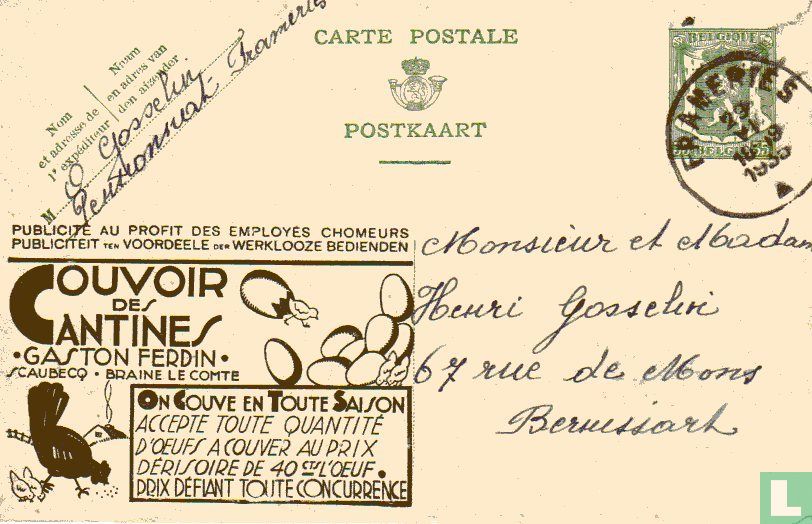 CARTE POSTALE
POSTKAART
Nom
et adresse de
l'expéditeur
Naam
en adres van
den afzender
M
O Gosselin
Frameries
BELGIQUE
BELGIE
35
FRAMERIES
18-19
1935
PUBLICITÉ AU PROFIT DES EMPLOYÉS CHOMEURS
PUBLICITEIT TEN VOORDEELE DER WERKLOOZE BEDIENDEN
COUVOIR
DES
CANTINES
•GASTON FERDIN•
SCAUBECQ • BRAINE LE COMTE
ON COUVE EN TOUTE SAISON
ACCEPTE TOUTE QUANTITÉ
D'OEUFS A COUVER AU PRIX
DÉRISOIRE DE 40 CTS L'OEUF.
PRIX DÉFIANT TOUTE CONCURRENCE
Monsieur et Madam
Henri Gosselin
67 rue de Mons
Bernissart
L